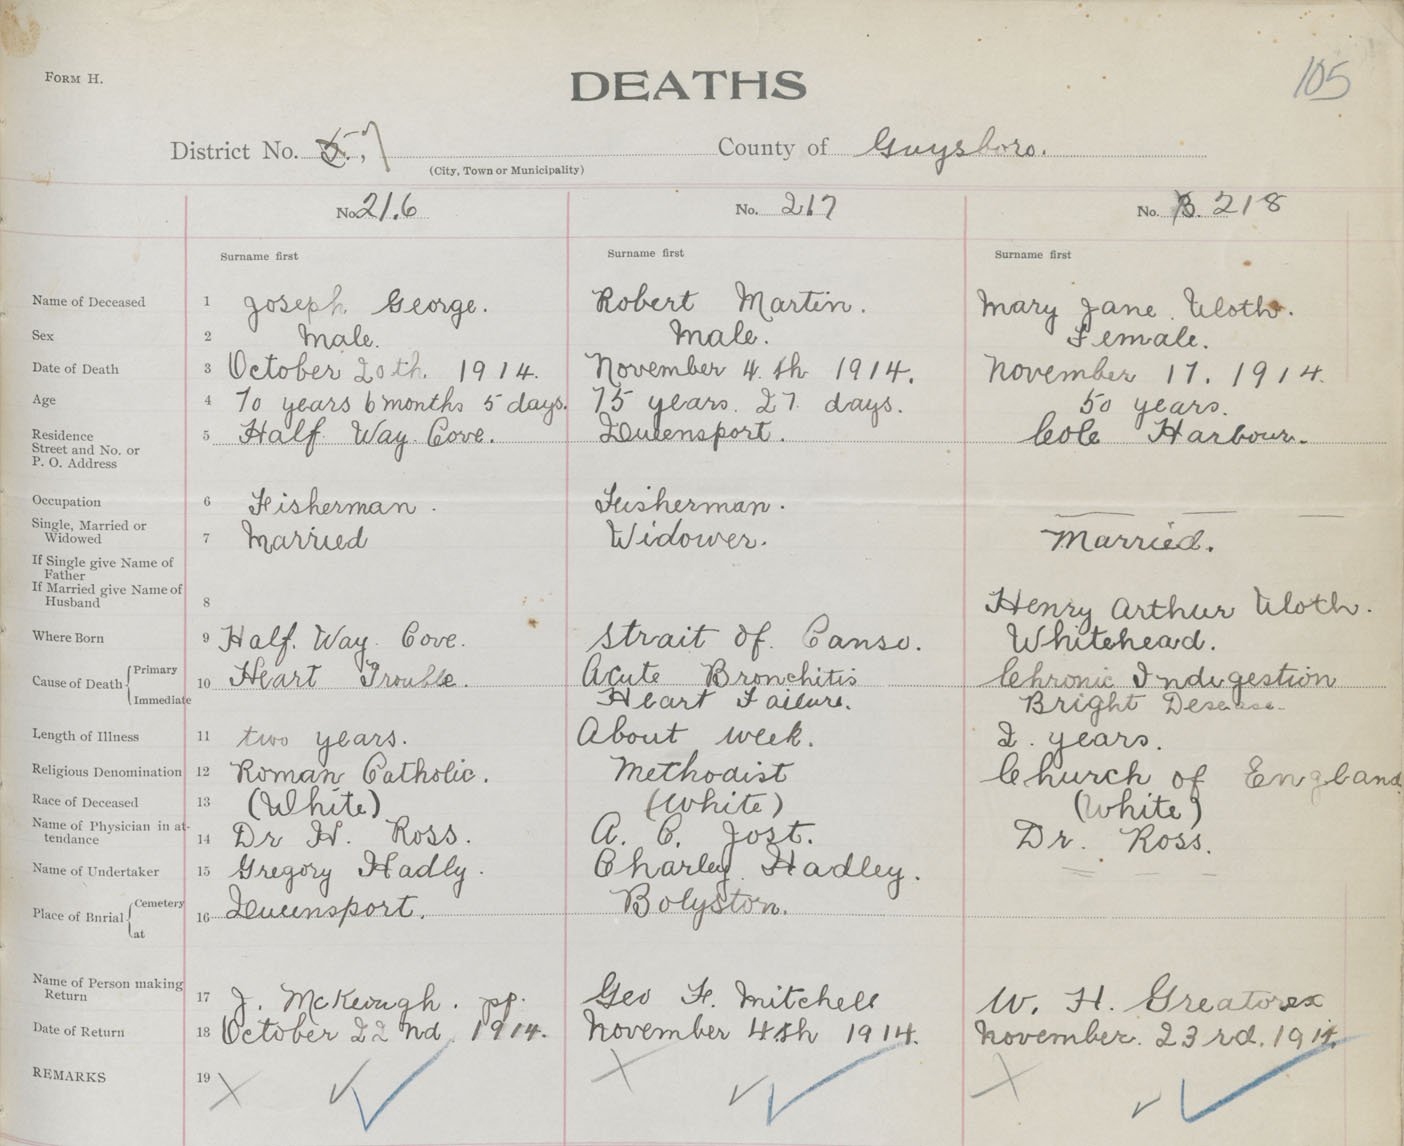 FORM H.
DEATHS
105
District No. 5., 7
County of Guysboro.
(City, Town or Municipality)
No. 21.6
No. 217
No. 218
Surname first
Surname first
Surname first
Name of Deceased 1 Joseph George. Robert Martin. Mary Jane Uloth.
Sex 2 Male. Male. Female.
Date of Death 3 October 20th. 1914. November 4.th 1914. November 17. 1914.
Age 4 70 years 6 months 5 days. 75 years. 27 days. 50 years.
Residence
Street and No. or
P. O. Address
5 Half Way Cove. Queensport. Cole Harbour.
Occupation 6 Fisherman. Fisherman.
Single, Married or
Widowed 7 Married Widower. Married.
If Single give Name of
Father
If Married give Name of
Husband 8 Henry Arthur Uloth.
Where Born 9 Half. Way Cove. Strait Of Canso. Whitehead.
Cause of Death Primary
Immediate
10 Heart Trouble. Acute Bronchitis Chronic Indigestion
Heart Failure. Bright Desease.
Length of Illness 11 two years. About week. 2. years.
Religious Denomination 12 Roman Catholic. Methodist Church of England
Race of Deceased 13 (White) (White) (White)
Name of Physician in at-
tendance 14 Dr H. Ross. A. C. Jost. Dr. Ross.
Name of Undertaker 15 Gregory Hadly. Charley Hadley.
Place of Burial Cemetery
at
16 Queensport. Bolyston.
Name of Person making
Return 17 J. McKeough. pp. Geo F. Mitchell W. H. Greatorex
Date of Return 18 October 22nd 1914. November 4th 1914. November. 23rd. 1914.
REMARKS 19